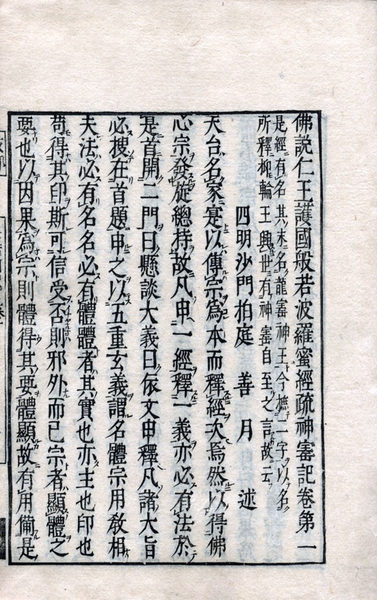 佛說仁王護國般若波羅蜜經疏神寶記卷第一
是經有名其末名龍寶神王今摭二字以名
所釋抑輪王興世有神寶自至之言故云
四明沙門柏庭　善月　述
天台名家寔以傳宗為本而釋經次焉然以得佛
心宗發旋總持故凡申一經釋一義亦必有法於
是首開二門曰懸談大義曰依文申釋凡諸大旨
必搜在首題申之以五重玄義謂名體宗用教相
夫法必有名名必有體體者其實也亦主也印也
苟得其印斯可信受否則邪外而已宗者顯體之
要也以因果為宗則體得其要體顯故有用備是